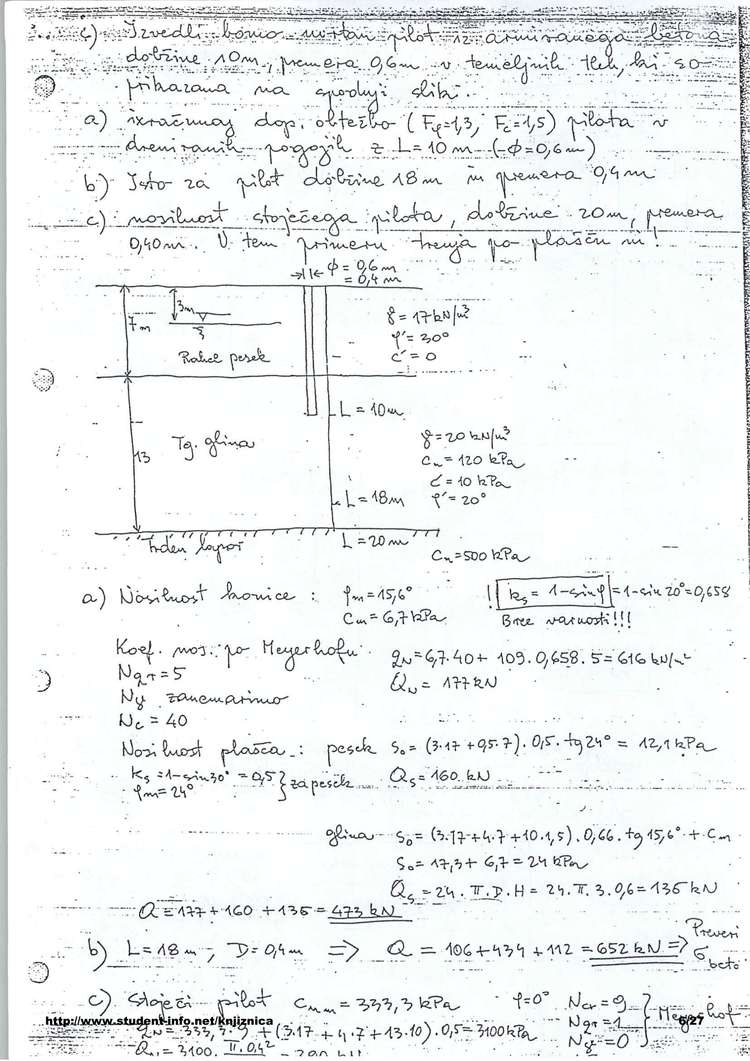 c) Izvedli bomo uvrtan pilot iz armiranega betona
dolžine 10m, premera 0,6m v temeljnih tleh, ki so
prikazana na spodnji sliki.
a) izračunaj dop. obtežbo (Fφ=1,3, Fc=1,5) pilota v
dreniranih pogojih z L=10m (Φ=0,6m)
b) Isto za pilot dolžine 18m in premera 0,4m
c) nosilnost stoječega pilota, dolžine 20m, premera
0,40m. V tem primeru trenja po plašču ni!
Φ = 0,6m
= 0,4m
3m
7m
Rahel pesek
γ = 17 kN/m³
φ' = 30°
c' = 0
L = 10m
Tg. glina
13
γ = 20 kN/m³
cu = 120 kPa
c' = 10 kPa
φ' = 20°
L = 18m
Trden lapor
L = 20m
Cu = 500 kPa
a) Nosilnost konice : φm = 15,6°
Cm = 6,7 kPa
! ks = 1 - sin φ = 1 - sin 20° = 0,658
Brez varnosti!!!
Koef. nos. po Meyerhofu
Nqr = 5
Nγ zanemarimo
Nc = 40
qN = 6,7 . 40 + 109 . 0,658 . 5 = 616 kN/m²
QN = 177 kN
Nosilnost plašča : pesek So = (3.17 + 0,5.7) . 0,5 . tg 24° = 12,1 kPa
ks = 1 - sin 30° = 0,5
φm = 24°
} za pesek
Qs = 160 kN
glina So = (3.17 + 4.7 + 10.1,5) . 0,66 . tg 15,6° + Cm
So = 17,3 + 6,7 = 24 kPa
Qs = 24 . π . D . H = 24 . π . 3 . 0,6 = 136 kN
Q = 177 + 160 + 136 = 473 kN
b) L = 18m, D = 0,4m => Q = 106 + 434 + 112 = 652 kN => Preveri
σ beto
c) Stoječi pilot Cum = 333,3 kPa φ = 0° Ncr = 9
Nqr = 1
Nγ = 0
} Meyerhof
http://www.student-info.net/knjiznica
6/27
qN = 333,3 . 9 + (3.17 + 4.7 + 13.10) . 0,5 = 3100 kPa
QN = 3100 . π.0,4²